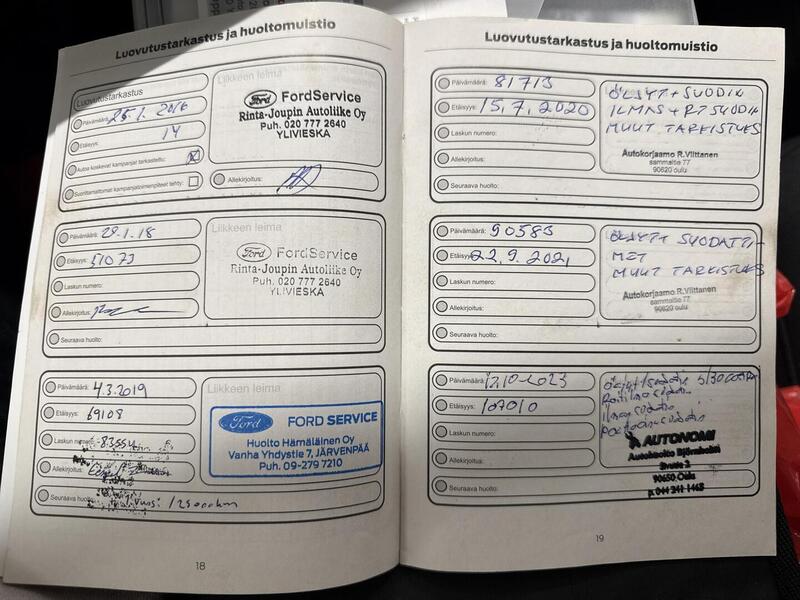 Luovutustarkastus ja huoltomuistio
Luovutustarkastus
Päivämäärä: 25.1. 2016
Etäisyys: 14
Autoa koskevat kampanjat tarkastettu: X
Suorittamattomat kampanjatoimenpiteet tehty:
Liikkeen leima
Ford FordService
Rinta-Joupin Autoliike Oy
Puh. 020 777 2640
YLIVIESKA
Allekirjoitus:
Päivämäärä: 29.1.18
Etäisyys: 51073
Laskun numero:
Allekirjoitus:
Seuraava huolto:
Liikkeen leima
Ford FordService
Rinta-Joupin Autoliike Oy
Puh. 020 777 2640
YLIVIESKA
Päivämäärä: 4.3.2019
Etäisyys: 69108
Laskun numero:
Allekirjoitus:
Seuraava huolto:
Liikkeen leima
Ford FORD SERVICE
Huolto Hämäläinen Oy
Vanha Yhdystie 7, JÄRVENPÄÄ
Puh. 09-279 7210
18
Luovutustarkastus ja huoltomuistio
Päivämäärä: 81713
Etäisyys: 15.7.2020
Laskun numero:
Allekirjoitus:
Seuraava huolto:
ÖLJYT+SUODIN
ILMNS+RT SUODIN
MUUT TARKISTUKS
Autokorjaamo R.Viittanen
sammaltie 77
90620 oulu
Päivämäärä: 90583
Etäisyys: 22.9.2021
Laskun numero:
Allekirjoitus:
Seuraava huolto:
ÖLJYT+ SUODATTI-
MET
MUUT TARKISTUKS
Autokorjaamo R.Viittanen
sammaltie 77
90620 oulu
Päivämäärä: 12.10-2023
Etäisyys: 107010
Laskun numero:
Allekirjoitus:
Seuraava huolto:
AUTONOMI
Autohuolto
90650 Oulu
p.044 241 1468
19